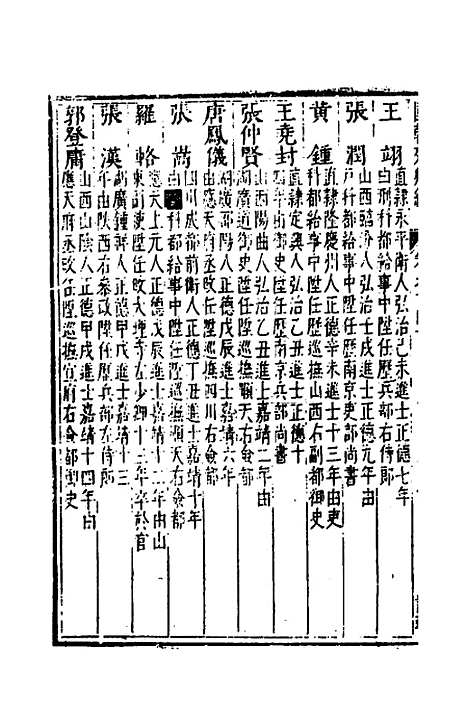 王翊直隸永平衛人弘治己未進士正德七年
由刑科都給事中陞任歷兵部右侍郎
張潤山西臨汾人弘治壬戌進士正德元年由
戶科都給事中陞任歷南京吏部尚書
黃鍾直隸隆慶州人正德辛未進士十三年由吏
科都給事中陞任歷巡撫山西右副都御史
王堯封直隸定興人弘治乙丑進士正德十
四年由御史陞任歷南京兵部尚書
張仲賢山西陽曲人弘治乙丑進士嘉靖二年由
湖廣道御史陞任歷巡撫順天右僉都
唐鳳儀湖廣邵陽人正德戊辰進士嘉靖六年
由應天府丞改任陞巡撫四川右僉都
張嵩四川成都前衛人正德丁丑進士嘉靖十年
由科都給事中陞任陞巡撫順天右僉都
羅輅應天上元人正德戊辰進士嘉靖十二年由山
東副使陞任改大理寺左少卿十三年卒於官
張漢湖廣鍾祥人正德甲戌進士嘉靖十三
年由陝西右參政陞任歷兵部左侍郎
郭登庸山西山陰人正德甲戌進士嘉靖十四年由
應天府丞改任陞巡撫宣府右僉都御史